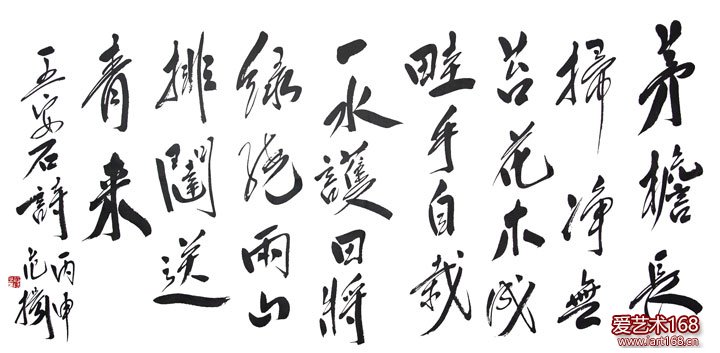 茅檐長
掃净無
苔花木成
畦手自栽
一水護田將
绿繞兩山
排闥送
青来
王安石詩
丙申
范
爱艺术168
www.iart168.cn